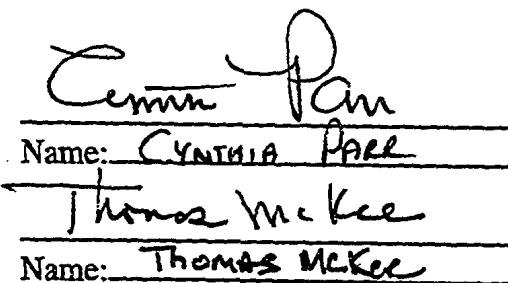 Cynthia Parr
Name: CYNTHIA PARR
Thomas McKee
Name: THOMAS McKee